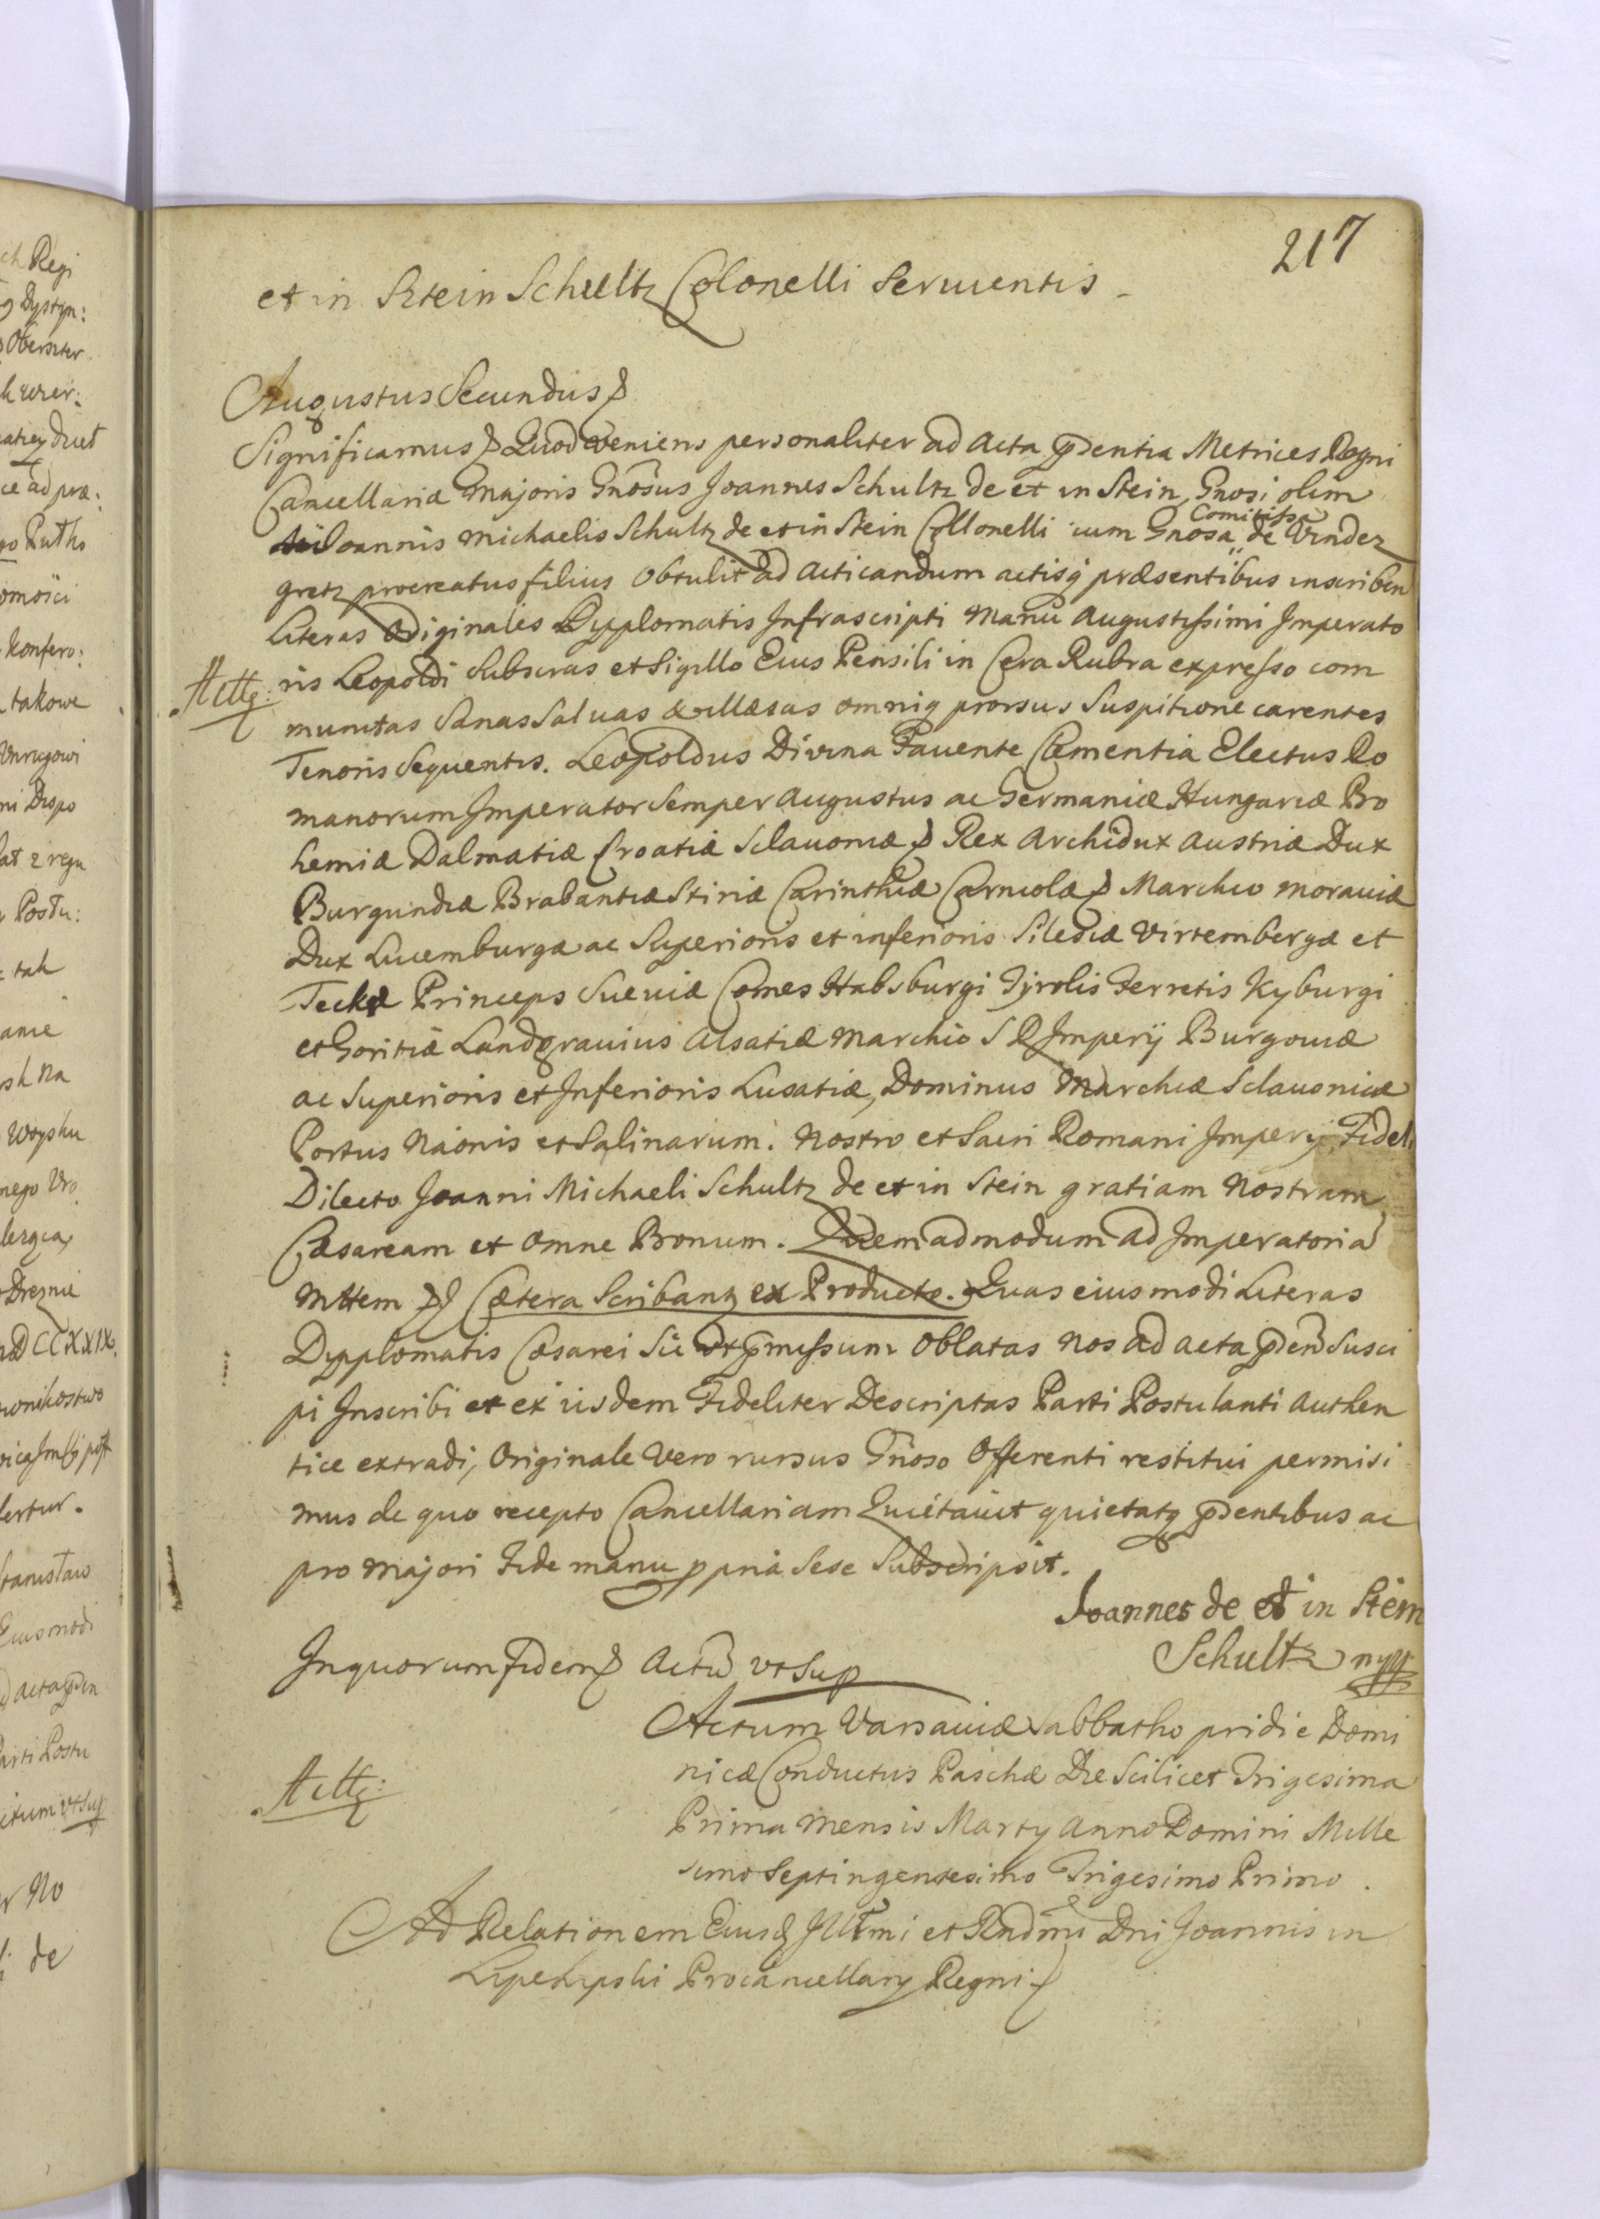 217
et in Sztein Schultz Colonelli Seruientis
Augustus Secundus
Significamus Quod veniens personaliter ad Acta pñdentia Metrices Regni
Cancellariæ Majoris Gnõsus Joannes Schultz de et in Stein, Gnosi olim
Joannis Michaelis Schultz de et in Stein Collonelli cum Gnosa Comitissa de Vindez
gretz procreatus filius obtulit ad acticandum actisq præsentibus inscriben
Literas Originales Dypplomatis Infrascripti Manu Augustissimi Imperato
ris Leopoldi Subscras et Sigillo Eius Pensili in Cera Rubra expresso com
munitas Sanas Saluas & illæsas omniq prorsus Suspitione carentes
Tenoris Sequentis. Leopoldus Divina Fauente Clementia Electus Ro
manorum Imperator Semper Augustus ac Germaniæ Hungariæ Bo
hemiæ Dalmatiæ Croatiæ Sclauoniæ Rex Archidux Austriæ Dux
Burgundiæ Brabantiæ Stiriæ Carinthiæ Carniolæ Marchio Morauiæ
Dux Lucemburgæ ac Superioris et inferioris Silesiæ Virtembergæ et
Teckæ Princeps Sueuiæ Comes Habsburgi Tyrolis Ferretis Kyburgi
et Goritiæ Landgrauius Alsatiæ Marchio S R Imperÿ Burgouiæ
ac Superioris et Inferioris Lusatiæ, Dominus Marchiæ Sclauonicæ
Portus Naonis et Salinarum. Nostro et Sacri Romani Imperÿ Fideli
Dilecto Joanni Michaeli Schultz de et in Stein gratiam Nostram
Cæsaream et omne Bonum. Quemadmodum ad Imperatoria
Mttem Cætera Scribantz ex Producto. Quas eiusmodi Literas
Dypplomatis Cæsarei Sic vt pmissum oblatas nos ad acta pden Susci
pi Inscribi et ex iisdem Fideliter Descriptas Parti Postulanti Authen
tice extradi, Originale Vero rursus Gnoso Offerenti restitui permisi
mus de quo recepto Cancellariam Quietauit quietatq pdentibus ac
pro majori Fide manu ppria Sese Subscripsit.
Joannes de et in Stein
Schultz mpp
In quorum fidem Actũ vt Sup
Actum Varsauiæ Sabbatho pridie Domi
nicæ Conductus Paschæ Die Scilicet Trigesima
Prima Mensis Martÿ Anno Domini Mille
simo Septingentesimo Trigesimo Primo.
Ad Relationem Eiusd Illtmi et Rndmi Dni Joannis in
Lipe Lipski Procancellarÿ Regni